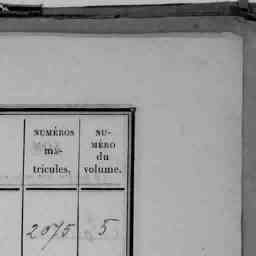 NUMÉROS
ma-
tricules.
NU-
MÉRO
du
volume.
2075 5